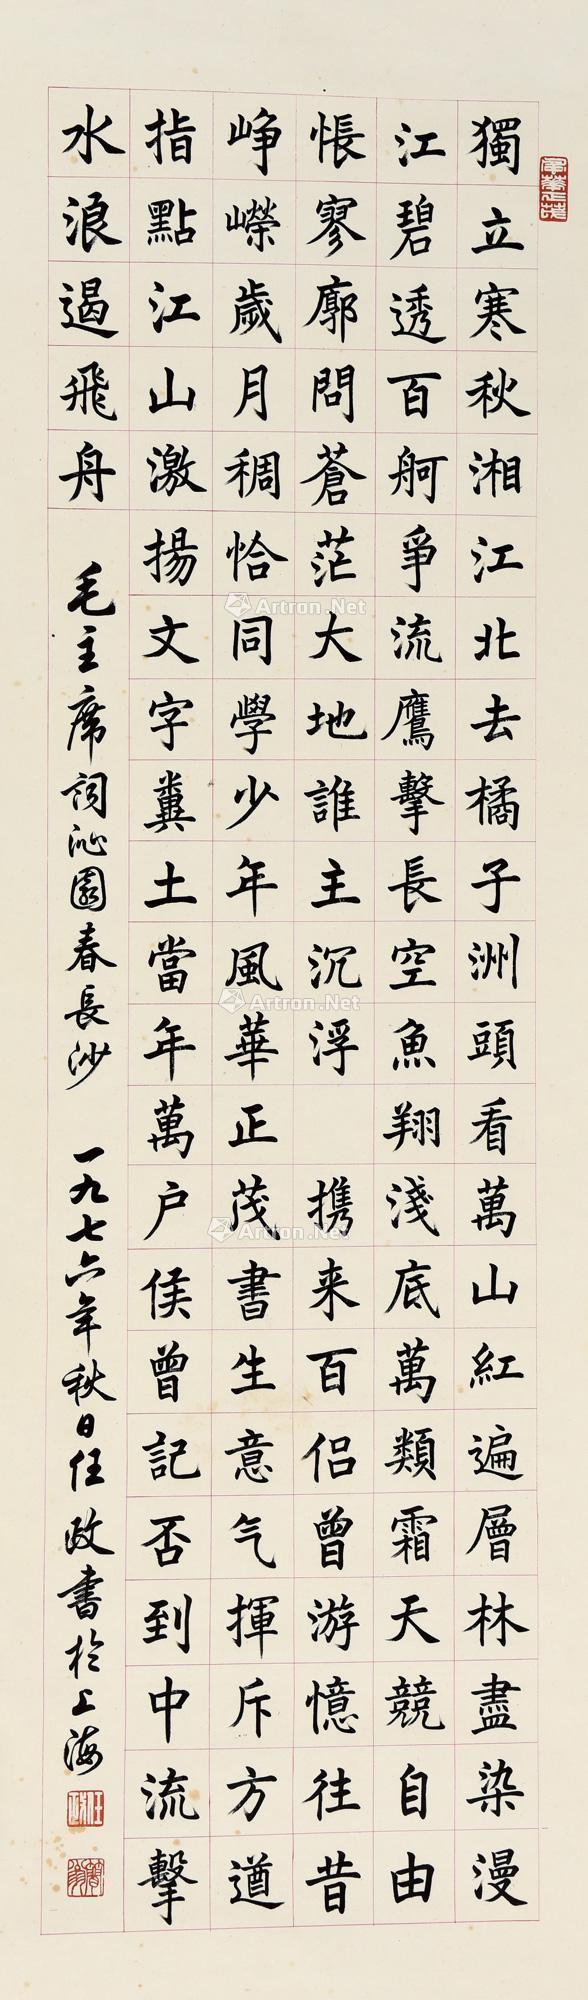 獨立寒秋湘江北去橘子洲頭看萬山紅遍層林盡染漫
江碧透百舸爭流鷹擊長空魚翔淺底萬類霜天競自由
悵寥廓問蒼茫大地誰主沉浮 携来百侣曾游憶往昔
崢嶸歲月稠恰同學少年風華正茂書生意气揮斥方遒
指點江山激揚文字糞土當年萬户侯曾記否到中流擊
水浪遏飛舟
毛主席詞沁園春長沙 一九七六年秋日任政書於上海
任政
Artron.Net
Artron.Net
Artron.Net